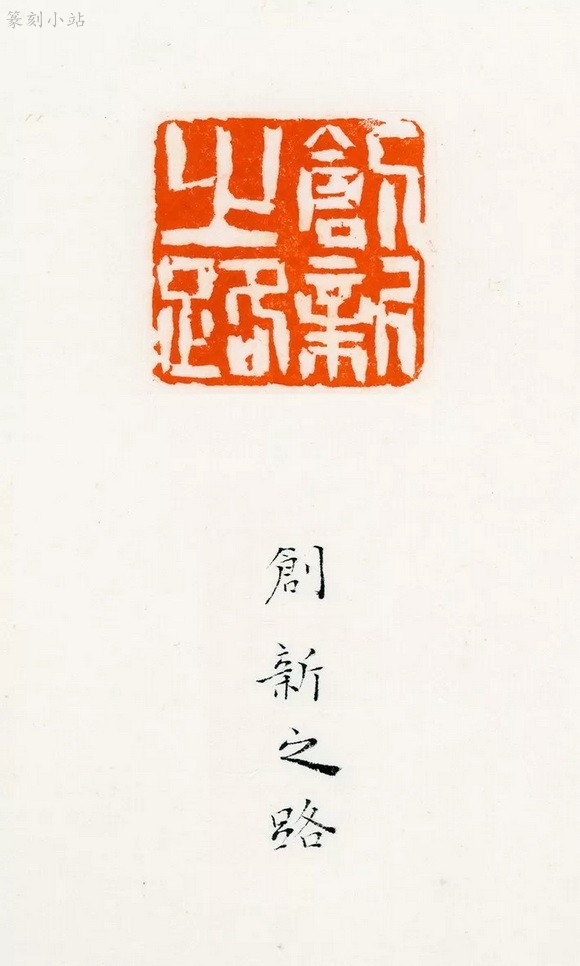 篆刻小站
創新
之路
創新之路